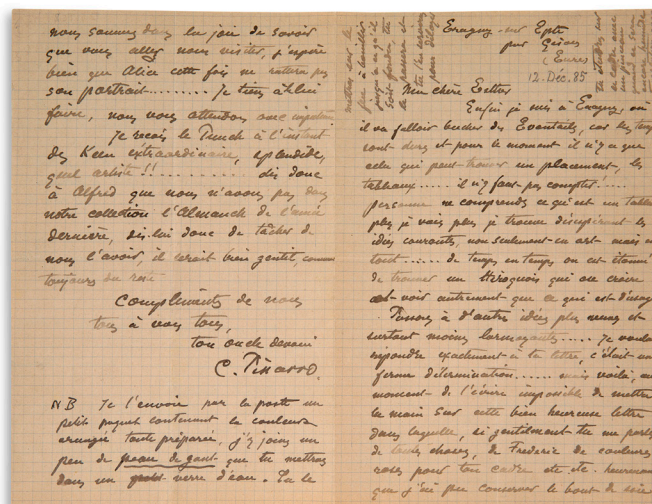 nous sommes dans la joie de savoir
que vous allez nous visiter, j'espère
bien que Alice cette fois ne ratera pas
son portrait......... Je tiens à le lui
faire, nous vous attendons avec impatience
Je reçois le Punch à l'instant
des Keen extraordinaire, splendide,
quel artiste !! . . . . . . . . . dis donc
à Alfred que nous n'avons pas dans
notre collection l'Almanach de l'année
dernière, dis-lui donc de tâcher de
nous l'avoir, il serait bien gentil, comme
toujours du reste
Compliments de nous
tous à vous tous,
ton oncle dévoué
C. Pissarro.
NB Je t'envoie par la poste un
petit paquet contenant la couleur
arrangée toute préparée, j'y joins un
peu de peau de gant que tu mettras
dans un verre d'eau. Tu le
mettras sur le
feu à bouillir
jusqu'à ce qu'il
soit fondu tu
le passera et
tu t'en servira
pour délayer
sur
ce cadre avec
un pinceau
quand ce sera
encore humide
Eragny-sur Epte
par Gisors
(Eure)
12. Déc. 85
Ma chère Esther
Enfin je suis à Eragny, où
il va falloir bucher des Eventails, car les temps
sont durs et pour le moment il n'y a que
cela qui peut trouver un placement, les
tableaux..... il n'y faut pas compter! ....
personne ne comprends ce qu'est un tableau
plus je vais plus je trouve désespérant les
idées courantes, non seulement en art mais en
tout ...... de temps en temps on est étonné
de trouver un Iroquois qui ose croire
et voir autrement que ce qui est d'usage
Passons à d'autres idées plus neuves et
surtout moins larmoyantes ..... je voulais
répondre exactement à ta lettre, c'était une
ferme détermination...... mais voilà, au
moment de l'écrire impossible de mettre
la main sur cette bien heureuse lettre
dans laquelle, si gentilment tu me parle
de choses, de Frédéric de couleurs
roses pour ton cadre etc etc. heureusement
que j'ai pu conserver le bout de soie